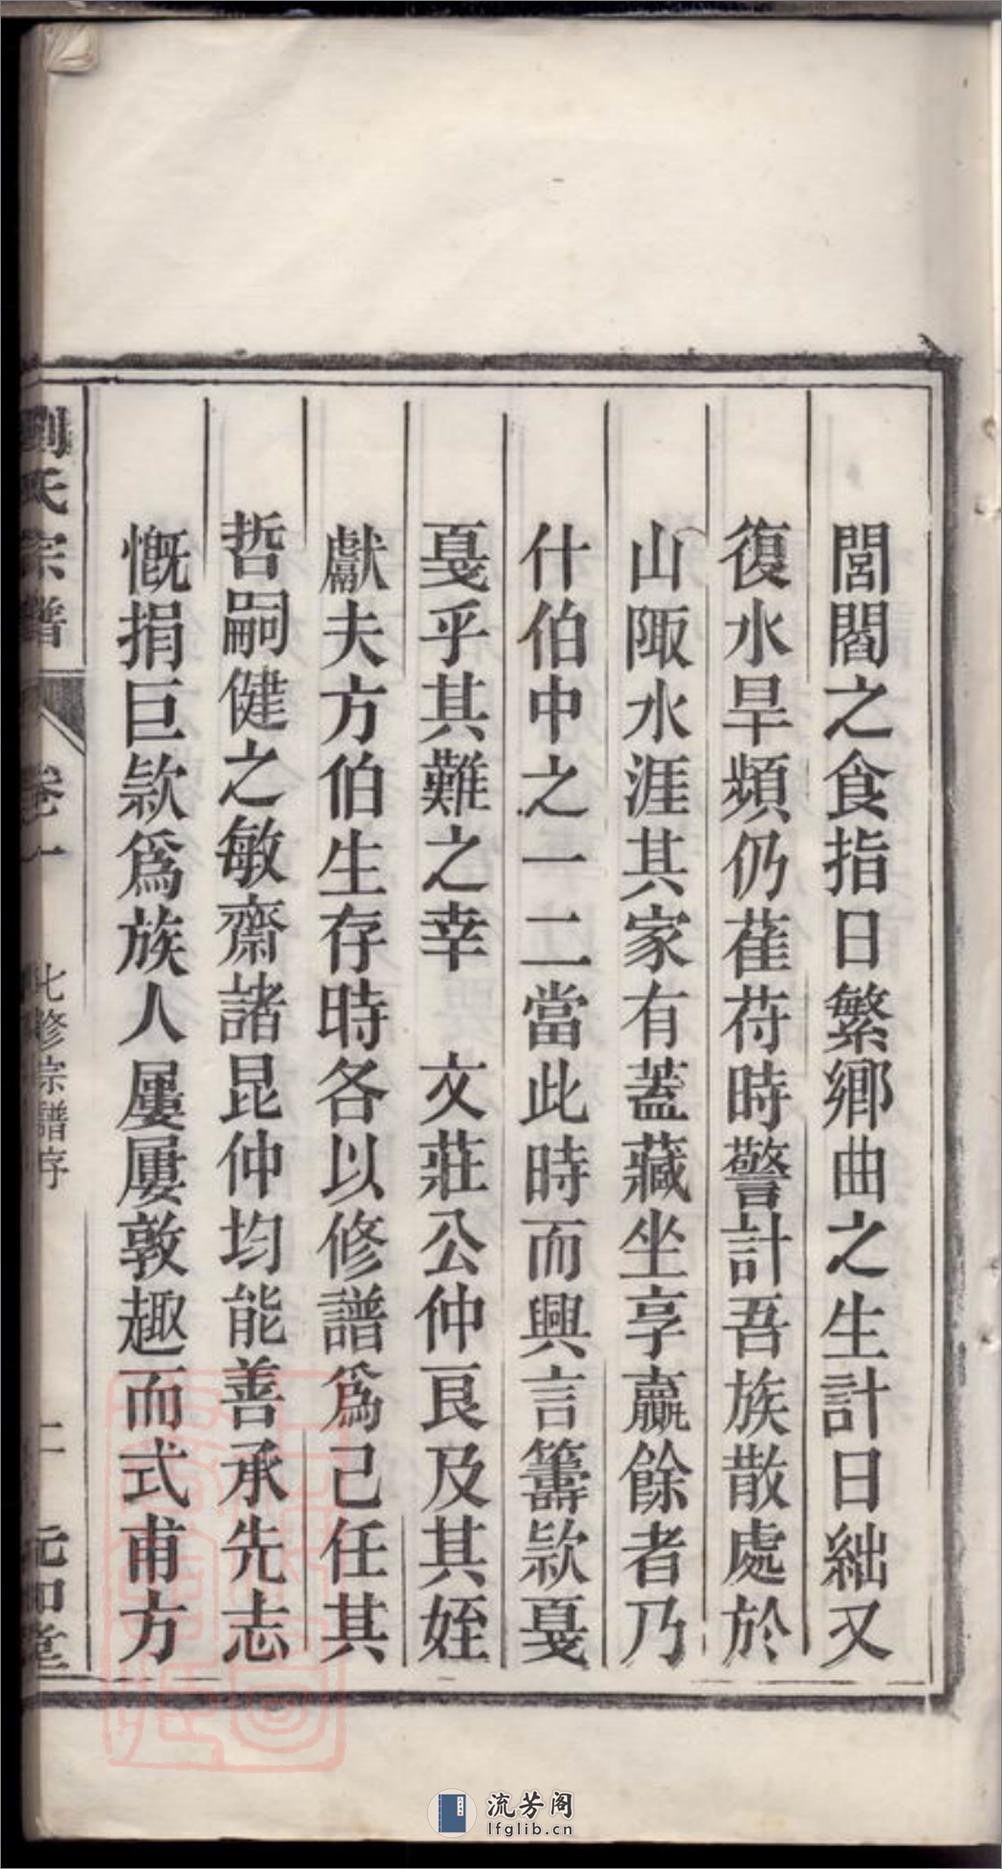 閭閻之食指日繁鄉曲之生計日絀又
復水旱頻仍萑苻時警計吾族散處於
山陬水涯其家有蓋藏坐享贏餘者乃
什伯中之一二當此時而興言籌款戞
戞乎其難之幸　文莊公仲良及其姪
獻夫方伯生存時各以修譜爲己任其
哲嗣健之敏齋諸昆仲均能善承先志
慨捐巨款爲族人屢屢敦趣而式甫方
劉氏宗譜　卷一　七修宗譜序　二　元和堂
流芳阁
lfglib.cn